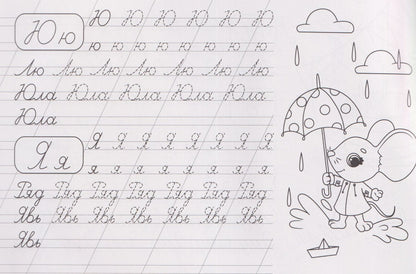 Ю ю
Ю Ю Ю Ю Ю Ю Ю
ю ю ю ю ю ю ю
Лю Лю Лю Лю Лю Лю Лю
Юла Юла Юла Юла Юла
Юла
Я я
Я Я Я Я Я Я Я Я
я я я я я я я я
Ряд Ряд Ряд Ряд Ряд Ряд Ряд
Явь Явь Явь Явь Явь Явь Явь
Явь